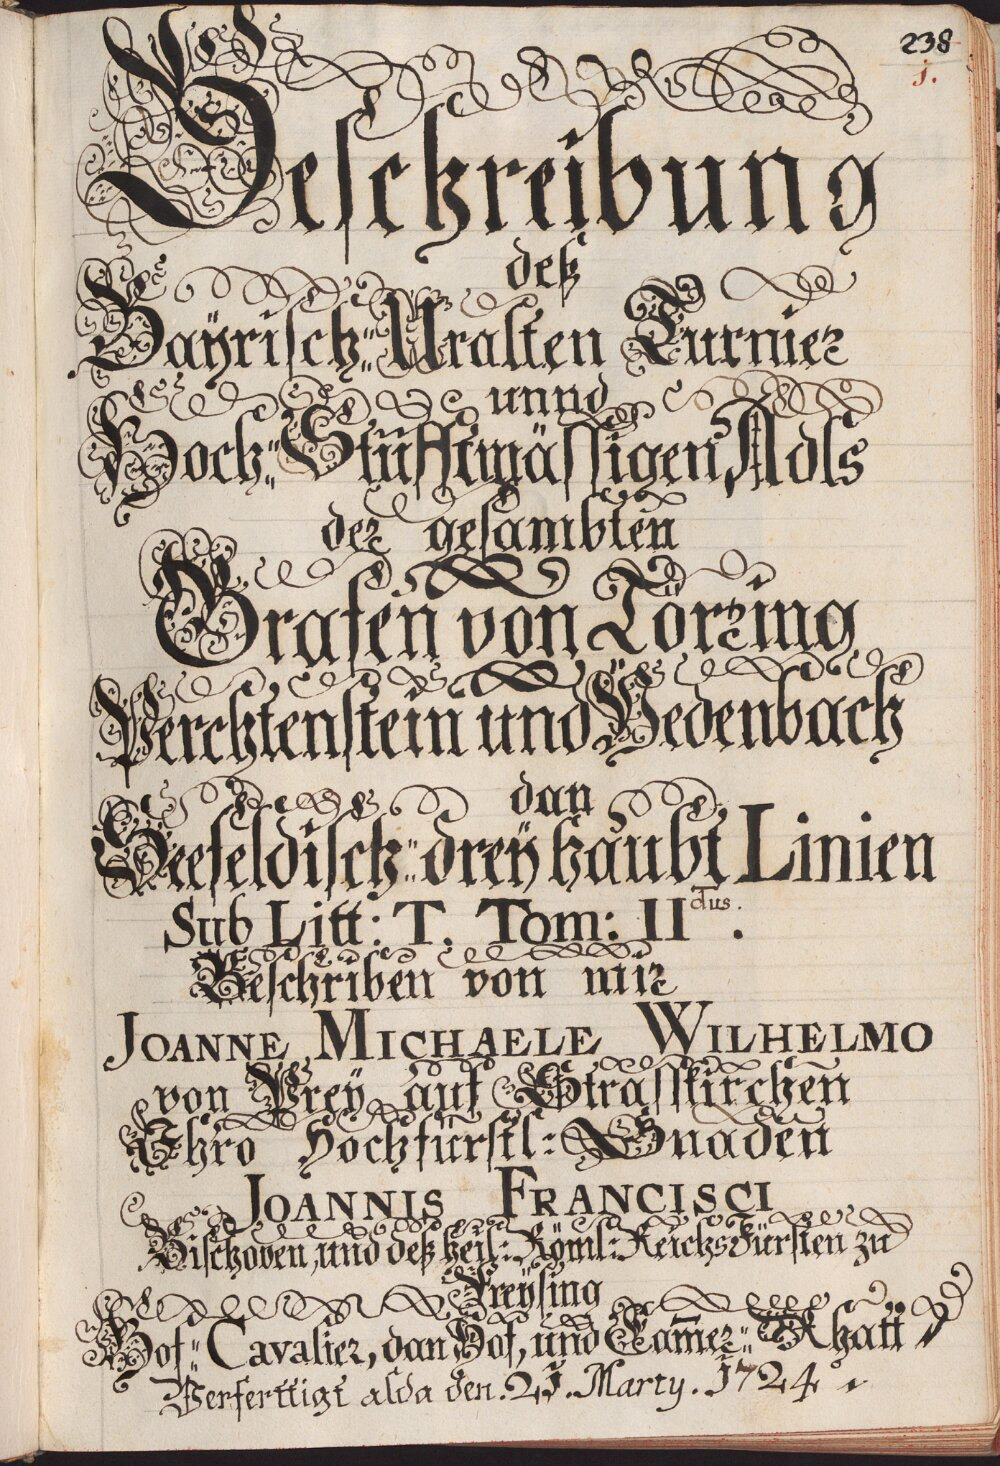 238
1.
Beschreibung
deß
Bayrisch: Uralten Turnier
unnd
Hoch: Stüfftmässigen Adls
der gesambten
Grafen von Törring
Perchtenstein und Pedenbach
dan
Seefeldisch: dreÿ haubt Linien
Sub Litt: T. Tom: II dus.
Beschriben von mir
JOANNE MICHAELE WILHELMO
von Preÿ auf Strasskirchen
Ihro Hochfürstl: Gnaden
JOANNIS FRANCISCI
Bischoven, und deß heil: Röml: Reichs Fürsten zu
Freÿsing
Hof: Cavalier, dan Hof, und Cam̄er: Rhatt
Verferttigt alda den. 21. Marty. 1724